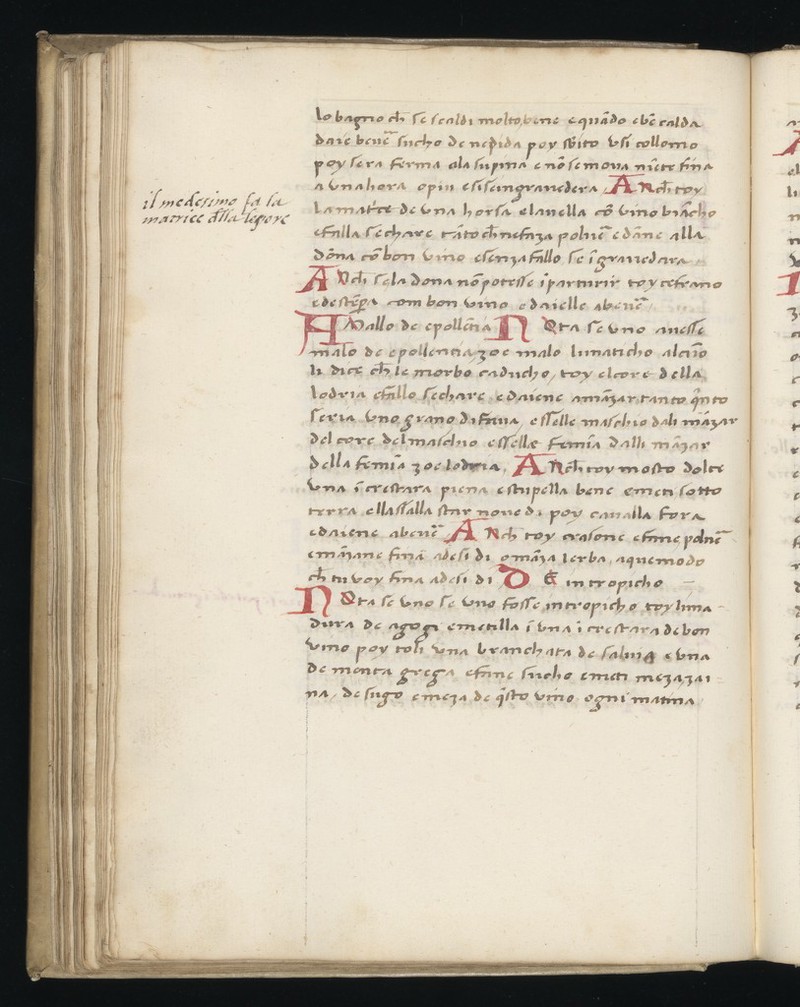 il medesimo fa la
matrice dlla legore
lo bagno ch̄ se scaldi molto bene e quādo ebē calda
daie beuē sucho de nepida poy sbito usi collomo
poy sera ferma ala supina e nō se moua niēte fina
a una hora o piu e si se ingrauedera ANch̄ toy
la matrce de una horsa e lauella cō uino biācho
e falla sechare tāto ch̄ ne faza poluē e dāne alla
dōna cō bon uino e senza fallo se īgrauedara
ANch̄ se la dona nō potesse īparturir toy cefrano
e destēpa com bon uino e daielle a beuē
A Mallo de epollēcia NOta se uno auesse
malo de epollencia, zoe malo lunaticho alcūo
li dice ch̄ le morbo caducho, toy el core della
lodria e fallo sechare e daiene a māzar tanto q̄nto
seria uno grano di faua, e sselle maschio dali māzar
del core del maschio e sselle femīa dalli māzar
della femīa zoe lodria, ANch̄ toy mosto dolce
una ī crestara piena e stupella bene e meti sotto
terra e llassalla star noue di poy caualla fora
e daiene a beuē ANch̄ toy crasone e fāne poluē
e māzane fina a desi di o māza lerba, a quemodo
ch̄ tu uoy fina a desi di DE intropicho
NOta se uno se uno fosse intropicho toy lima
dura de agogi e metilla ī una ī crestara de bon
uino poy toli una branchata de saluia e una
de menta grega e fane sucho e meti mezazai
na, de sugo e meza de q̄sto uino ogni matina